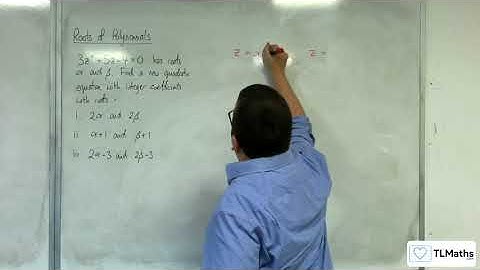 Roots of Polynomials
3z² + 5z - 4 = 0 has roots
α and β. Find a new quadratic
equation with integer coefficients
with roots:
i. 2α and 2β
ii. α+1 and β+1
iii. 2α-3 and 2β-3
z =
z =
TLMaths